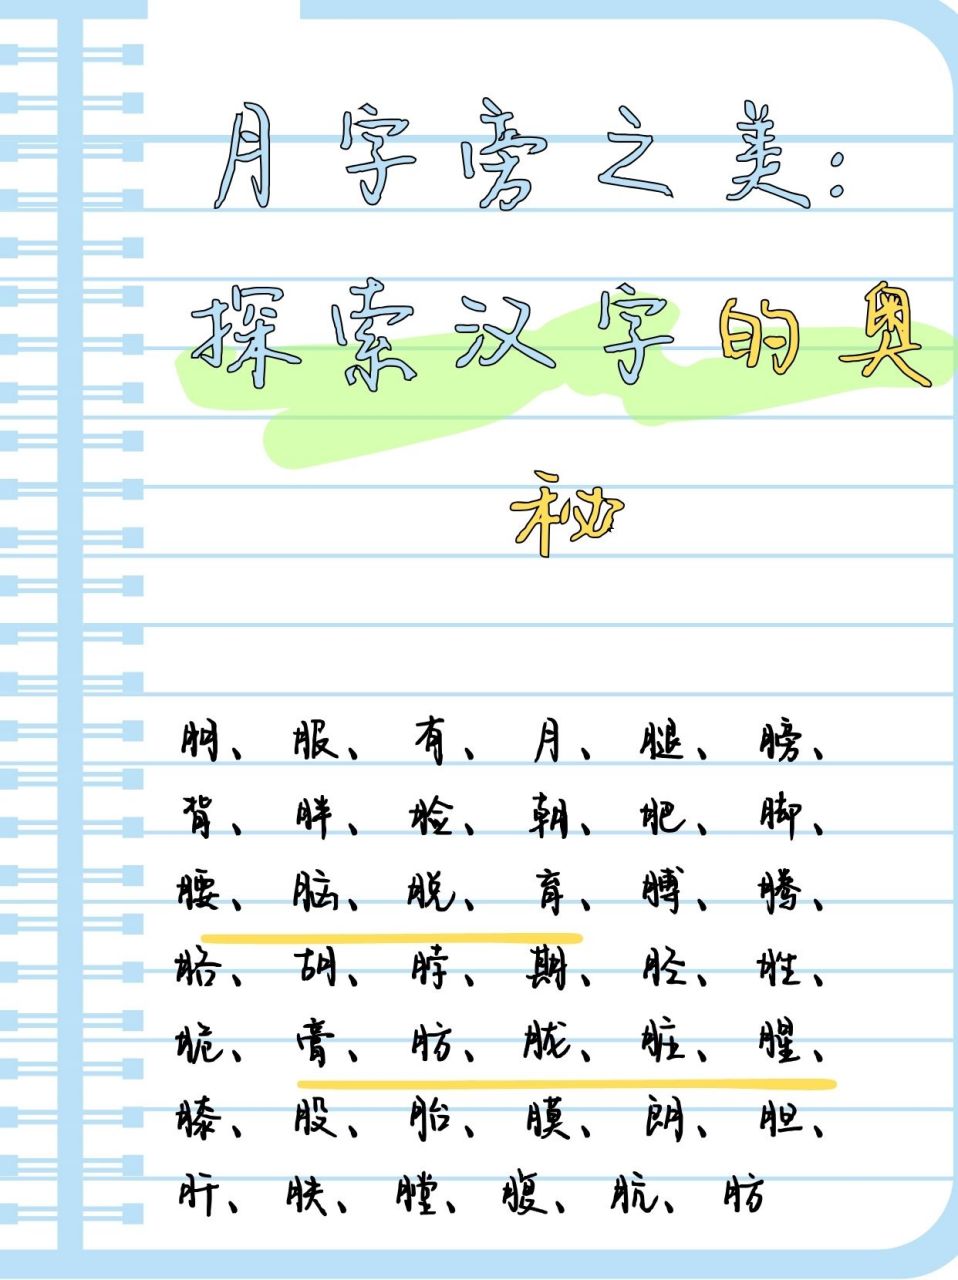 月字旁之美：
探索汉字的奥
秘
朋、服、有、月、腿、膀、
背、胖、脸、朝、肥、脚、
腰、脑、脱、育、膊、腾、
胳、胡、脖、期、胫、胜、
脆、膏、肪、胧、脏、腥、
膝、股、胎、膜、朗、胆、
肝、肤、膛、腹、肮、肪